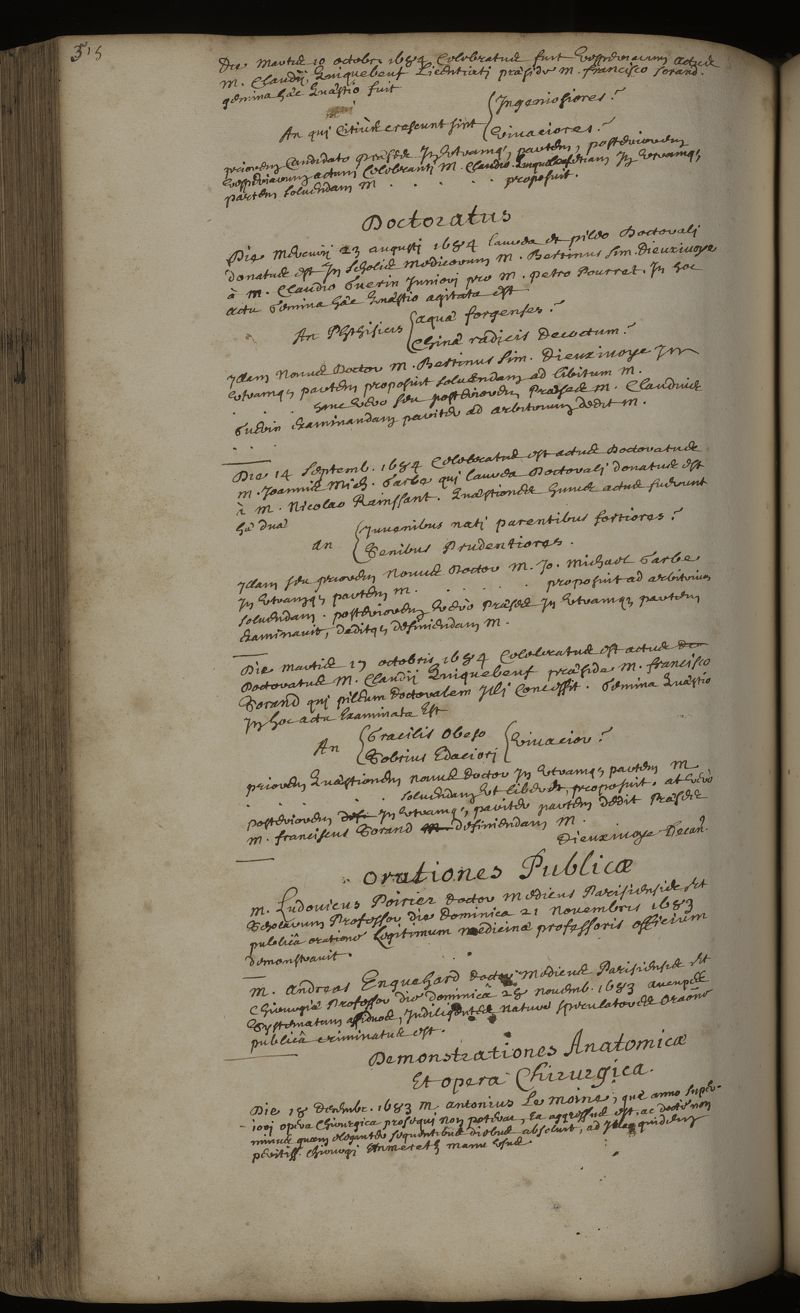 315
Die Martis 10 octobr. 1684 Celebratus fuit Vesperiarum actus
M. Claudij Quiquebeuf Licentiati præside M. francisco Sorand.
gemina hæc Quæstio fuit
An qui Citiùs crescunt sint { Ingeniosiores ?
Vivaciores ?
priorem Candidato præses In Utramq; partem, posteriorem
Vesperiarum actum Celebranti M. Claudio In Utramq;
partem soluendam M . . . . . proposuit .
Doctoratus
Die Mercurij 23 augusti 1684 laurea et pileo Doctorali
donatus est In Scholis Medicorum M. Bertinus Sim. Dieuxivoye
à M. Claudio Guerin Juniori pro M. Petro Pourret. In hoc
actu Gemina hæc Quæstio agitata est
An Phthisicis { aquæ forgenses ?
Chinæ radicis Decoctum ?
Illam Nouus Doctor M. Bertinus Sim. Dieuxivoye In
Utramq; partem proposuit soluendam ad libitum M.
. . . hanc Vero seu posteriorem Præses M. Claudius
Guerin Examinandam pariter ad arbitrium dedit M.
. . .
Die 14 Septemb. 1684 Celebratus est actus Doctoratus
M. Joannis Mich. Garbe qui laurea Doctorali donatus est
à M. Nicolao Rainssant. Quæstiones hujus actus fuerunt
hæ duæ
An { Juvenibus nati parentibus fortiores ?
Senibus Prudentiores .
Illam seu priorem Nouus Doctor M. Jo. Michael Garbe
In Utramq; partem M. . . . . . proposuit ad arbitrium
soluendam . posteriorem Vero Præses In Utramq; partem
Examinavit, deditq; definiendam M.
Die Martis 17 octobris 1684 Celebratus est actus
Doctoratus M. Claudij Quiquebeuf præside M. francisco
Sorand qui pileum doctoralem Illi Concessit. Gemina Quæstio
In hoc actu Examinata Est
An { Gracilis Obeso
Sobrius Edaciori } Vivacior ?
priorem Quæstionem nouus doctor In Utramq; partem M
. . . . . soluendam Ut liberet, proposuit. at Verò
posteriorem In Utramq; pariter partem dedit Præses
M. franciscus Sorand definiendam M.
Dieuxivoye Decan.
Orationes Publicæ
M. Ludovicus Poirier doctor Medicus Parisiensis Et
Scholarum Professor die Dominica 21 Novembris 1683
publicâ oratione Legitimum Medicinæ professoris officium
demonstravit .
M. Andreas Enguehard doctor Medicus Parisiensis Et
Chirurgiæ Professor die dominicâ 28 Novemb. 1683 aucupes
Systematum assiduos, Indiligentes naturæ speculatores Oraõne
publicâ criminatus est .
Demonstrationes Anatomicæ
Et opera Chirurgica.
Die 18 Decembr. 1683 M. antonius Le Moine, quæ anno superiori
opera Chirurgica prosequi non poterat, Ea aggressus est, ac doctè non
minus quam eleganter sequentibus diebus absolvit, ad Illa quidem
peritiss. chirurgi Emmerets manu Usus .